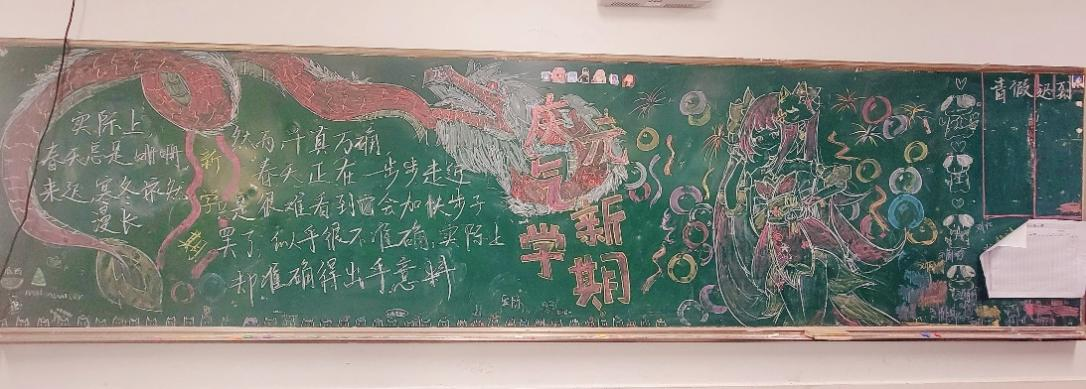 实际上
春天总是姗姗
来迟 寒冬依然
漫长
新
然而,千真万确
春天正在一步步走近
是很难看到它会加快步子
罢了 似乎很不准确,实际上
却准确得出乎意料
元
气
新
学
期
请假
迟到